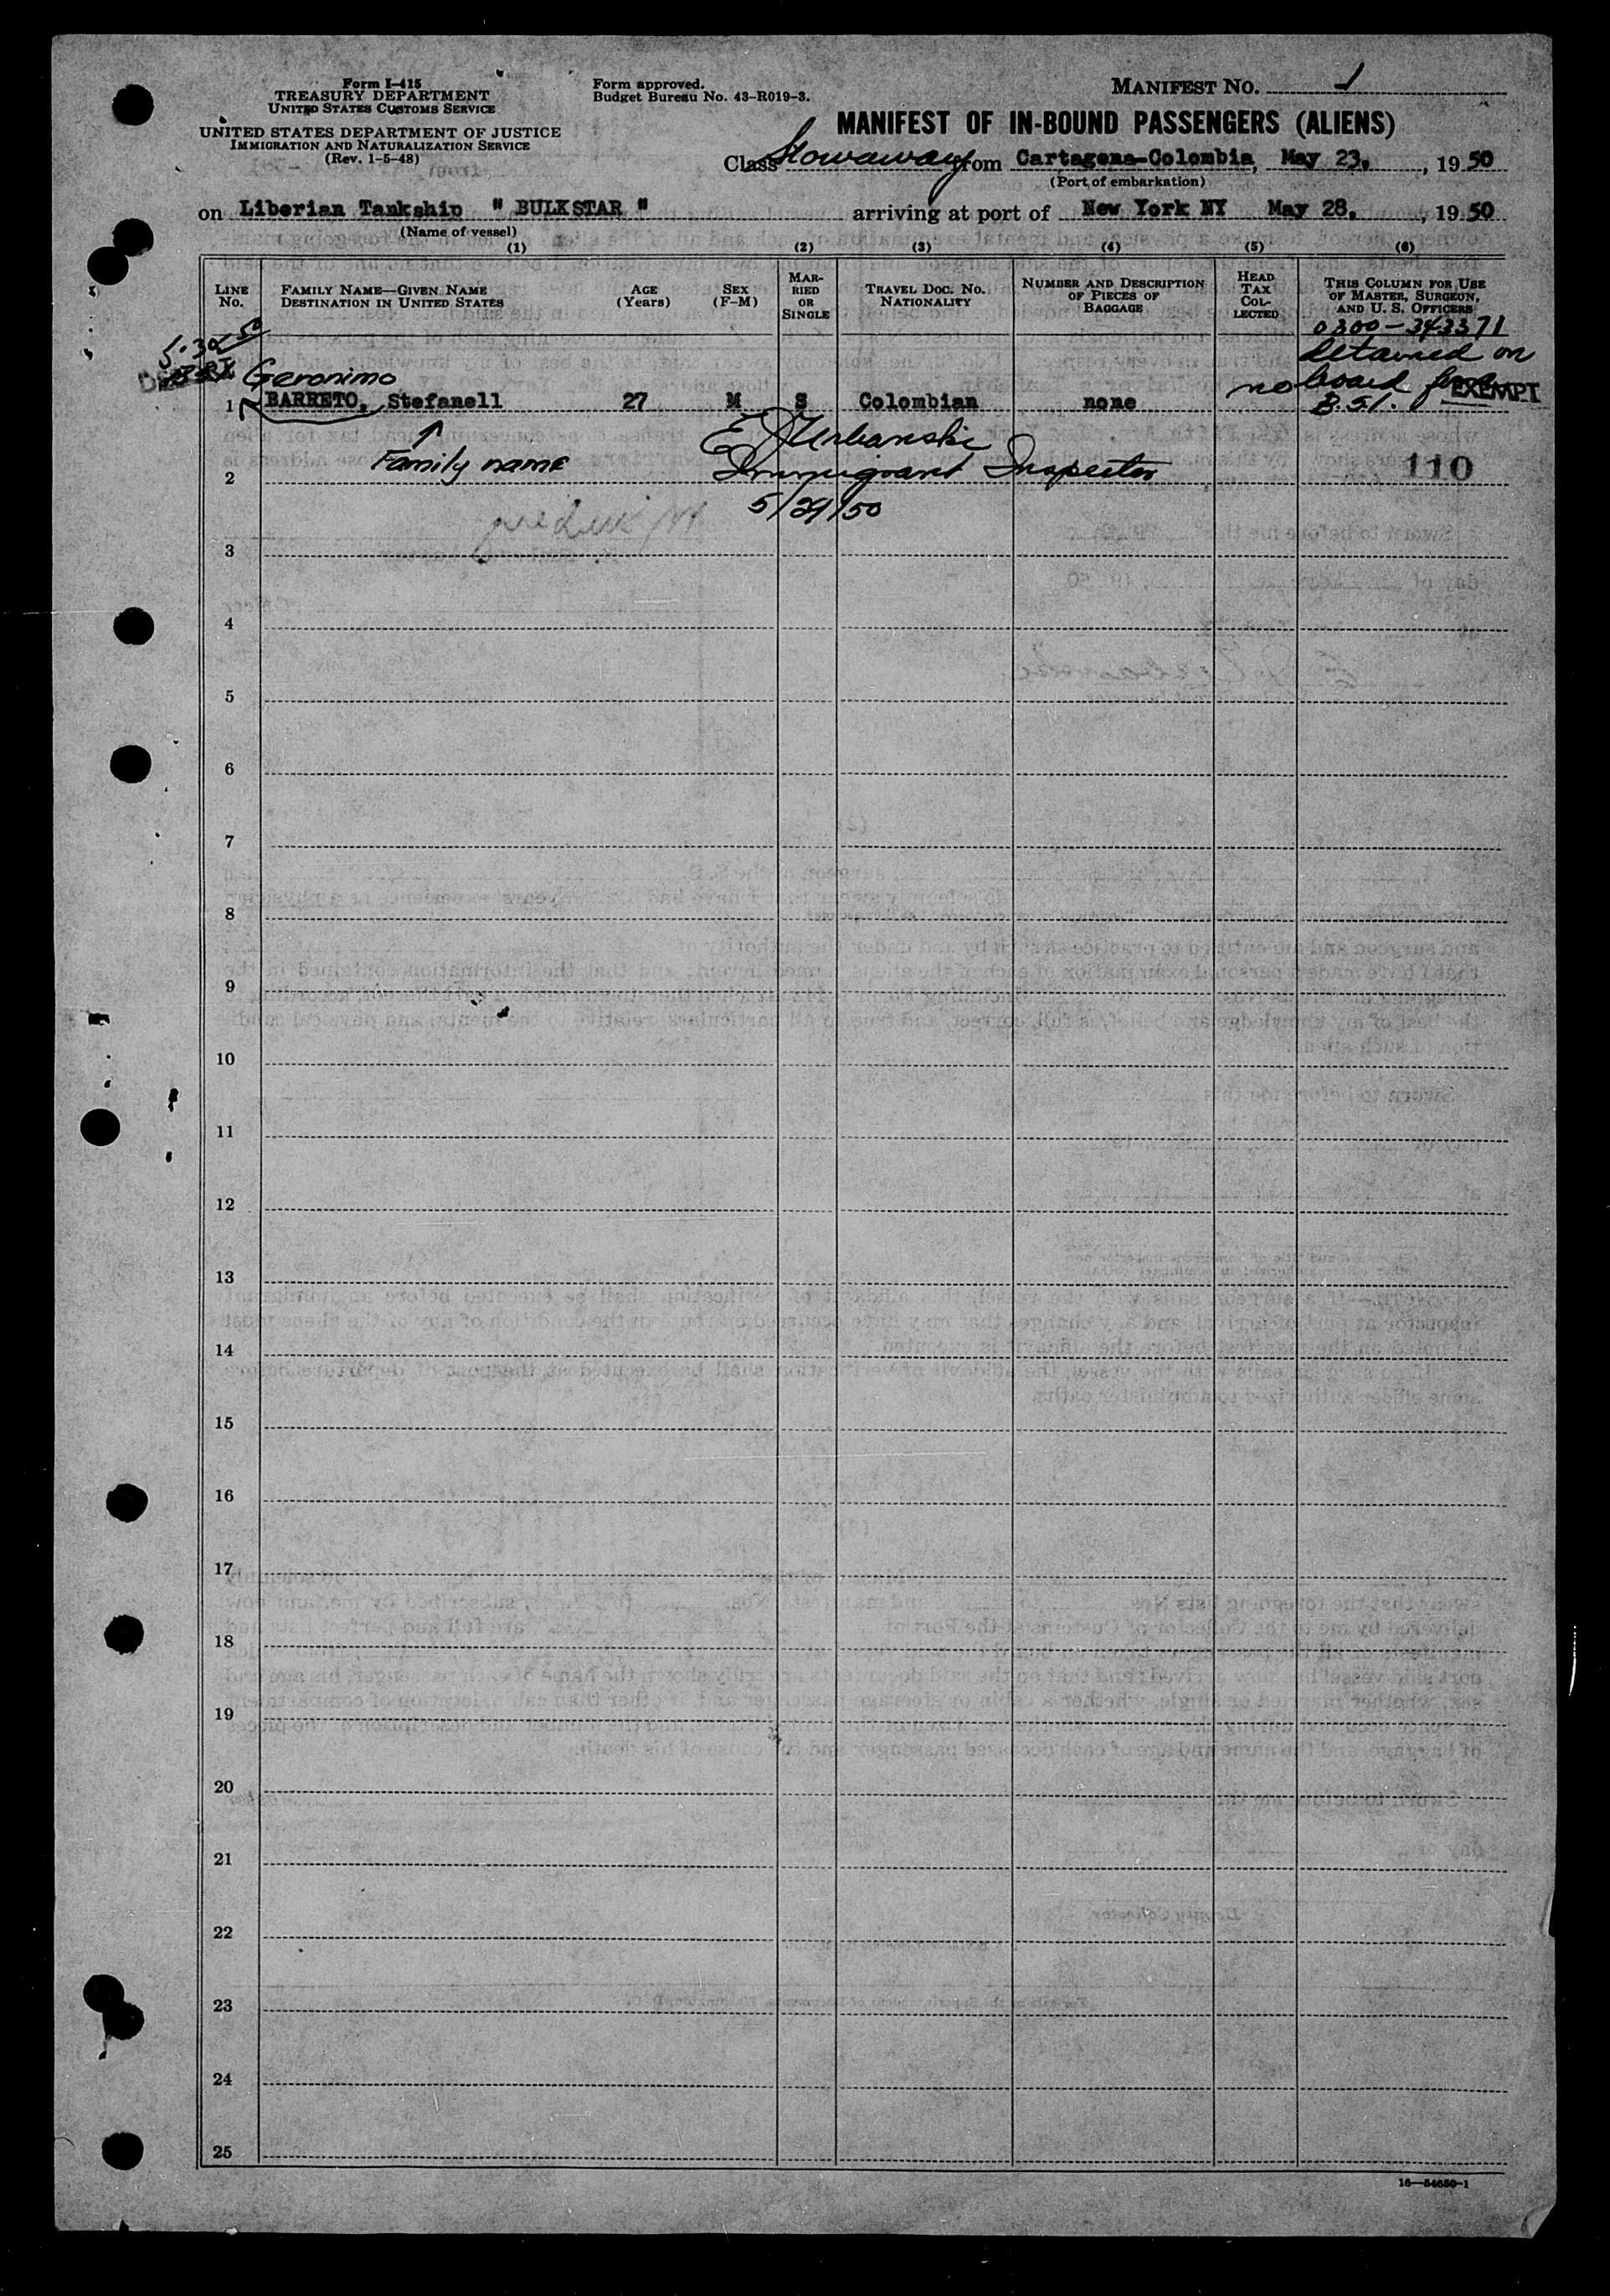 Form I-415
TREASURY DEPARTMENT
UNITED STATES CUSTOMS SERVICE
UNITED STATES DEPARTMENT OF JUSTICE
IMMIGRATION AND NATURALIZATION SERVICE
(Rev. 1-5-48)
Form approved.
Budget Bureau No. 43-R019-3.
MANIFEST NO. 1
MANIFEST OF IN-BOUND PASSENGERS (ALIENS)
Class Stowaway from Cartagena-Colombia, May 23, , 19 50
(Port of embarkation)
on Liberian Tankship " BULKSTAR " arriving at port of New York NY May 28, , 19 50
(Name of vessel)
(1) (2) (3) (4) (5) (6)
LINE No. FAMILY NAME—GIVEN NAME DESTINATION IN UNITED STATES AGE (Years) SEX (F-M) MARRIED OR SINGLE TRAVEL DOC. NO. NATIONALITY NUMBER AND DESCRIPTION OF PIECES OF BAGGAGE HEAD TAX COLLECTED THIS COLUMN FOR USE OF MASTER, SURGEON, AND U. S. OFFICERS
0300-343371
5-30-50
detained on
Geronimo no board for EXEMPT
1 BARRETO, Stefanell 27 M S Colombian none B.S.I.
E J Urbanski
Family name Immigrant Inspector 110
2
5/29/50
3
4
5
6
7
8
9
10
11
12
13
14
15
16
17
18
19
20
21
22
23
24
25
16—54650-1